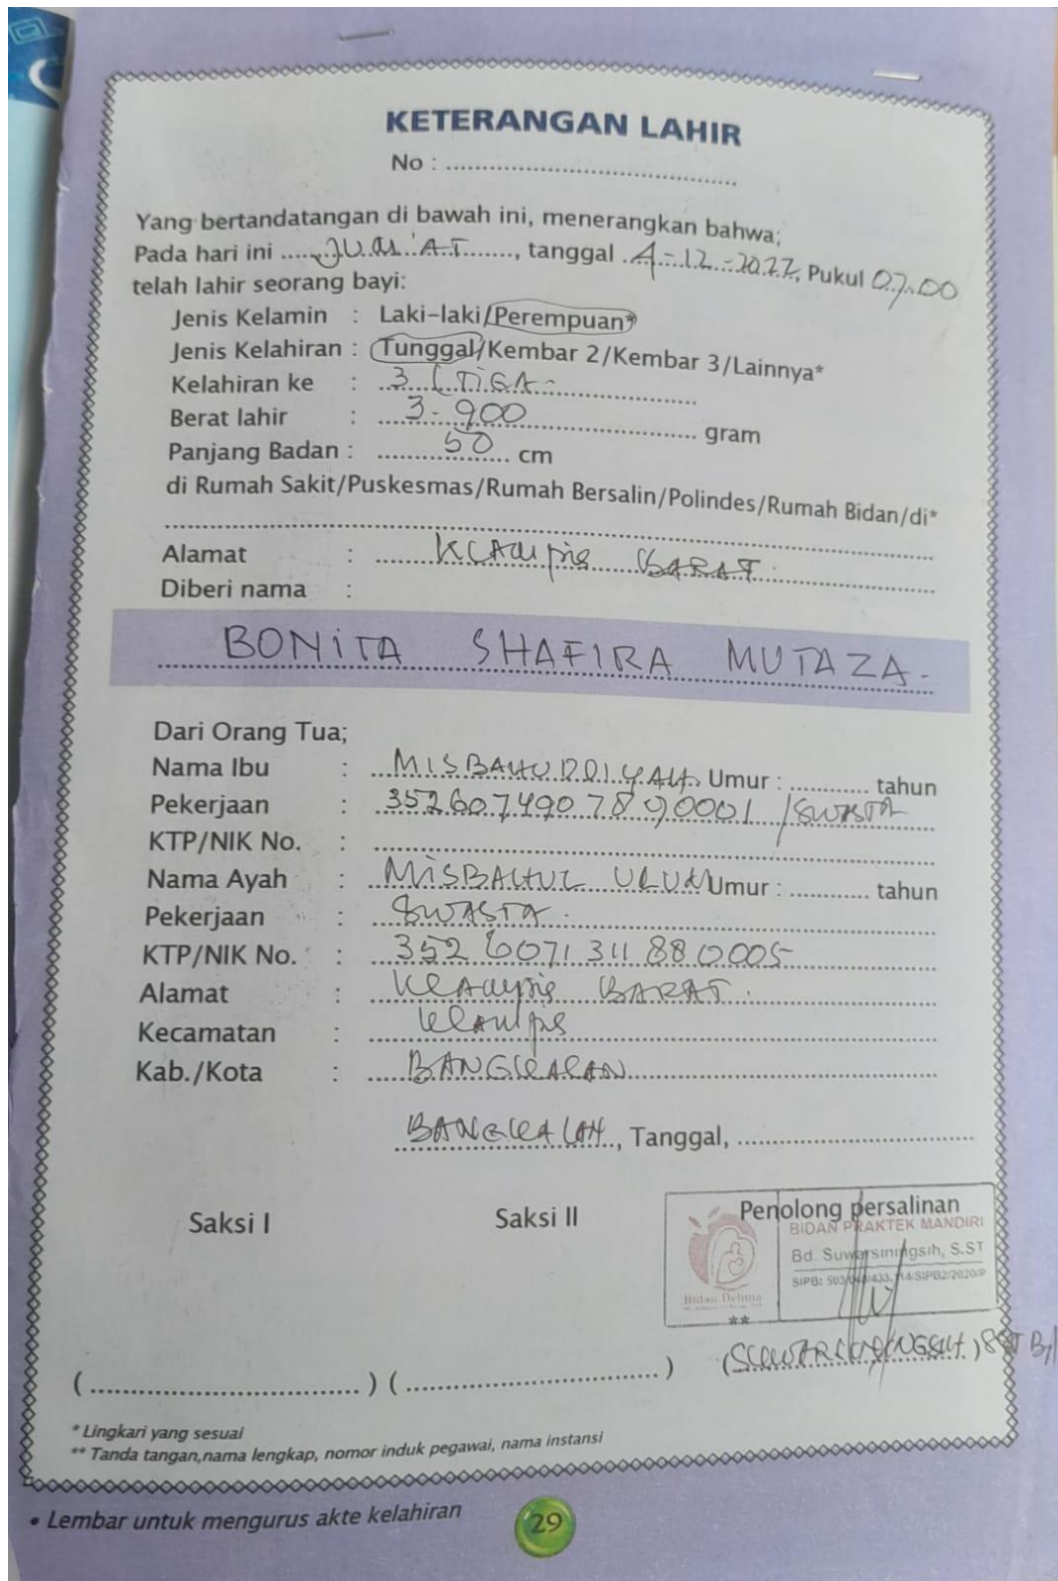 KETERANGAN LAHIR
No : ........................................
Yang bertandatangan di bawah ini, menerangkan bahwa;
Pada hari ini JUM'AT, tanggal 4-12-2022, Pukul 07.00
telah lahir seorang bayi:
Jenis Kelamin : Laki-laki/Perempuan*
Jenis Kelahiran : Tunggal/Kembar 2/Kembar 3/Lainnya*
Kelahiran ke : 3 (TIGA-
Berat lahir : 3-900 gram
Panjang Badan : 50 cm
di Rumah Sakit/Puskesmas/Rumah Bersalin/Polindes/Rumah Bidan/di*
Alamat : Klampis BARAT.
Diberi nama :
BONITA SHAFIRA MUTAZA-
Dari Orang Tua;
Nama Ibu : MISBAHUDDIYAH Umur : ............ tahun
Pekerjaan : /SWASTA
KTP/NIK No. :
Nama Ayah : MISBAHUL ULUM Umur : ............ tahun
Pekerjaan : SWASTA.
KTP/NIK No. : 3526071311880005
Alamat : Klampis BARAT.
Kecamatan : Klampis
Kab./Kota : BANGKALAN
BANGKALAN, Tanggal, ........................
Saksi I Saksi II Penolong persalinan
BIDAN PRAKTEK MANDIRI
Bd. Suwarsiningsih, S.ST
Bidan Delima
**
(....................) (....................) (SUWARSININGSIH.)
* Lingkari yang sesuai
** Tanda tangan,nama lengkap, nomor induk pegawai, nama instansi
• Lembar untuk mengurus akte kelahiran
29